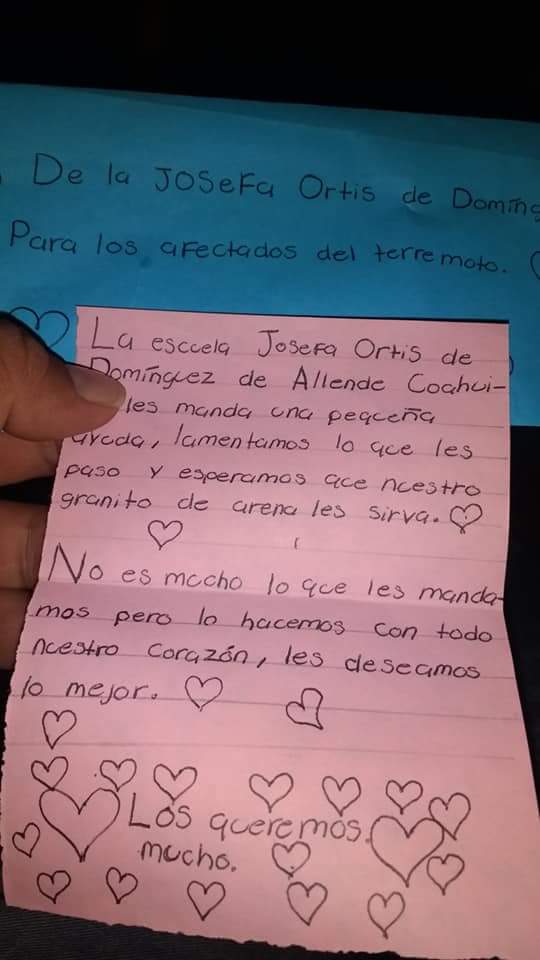 De la Josefa Ortis de Doming
Para los afectados del terremoto.
La escuela Josefa Ortis de
Domínguez de Allende Coahui-
les manda una pequeña
ayuda, lamentamos lo que les
paso y esperamos que nuestro
granito de arena les sirva.
No es mucho lo que les manda-
mos pero lo hacemos con todo
nuestro corazón, les deseamos
lo mejor.
Los queremos.
mucho.